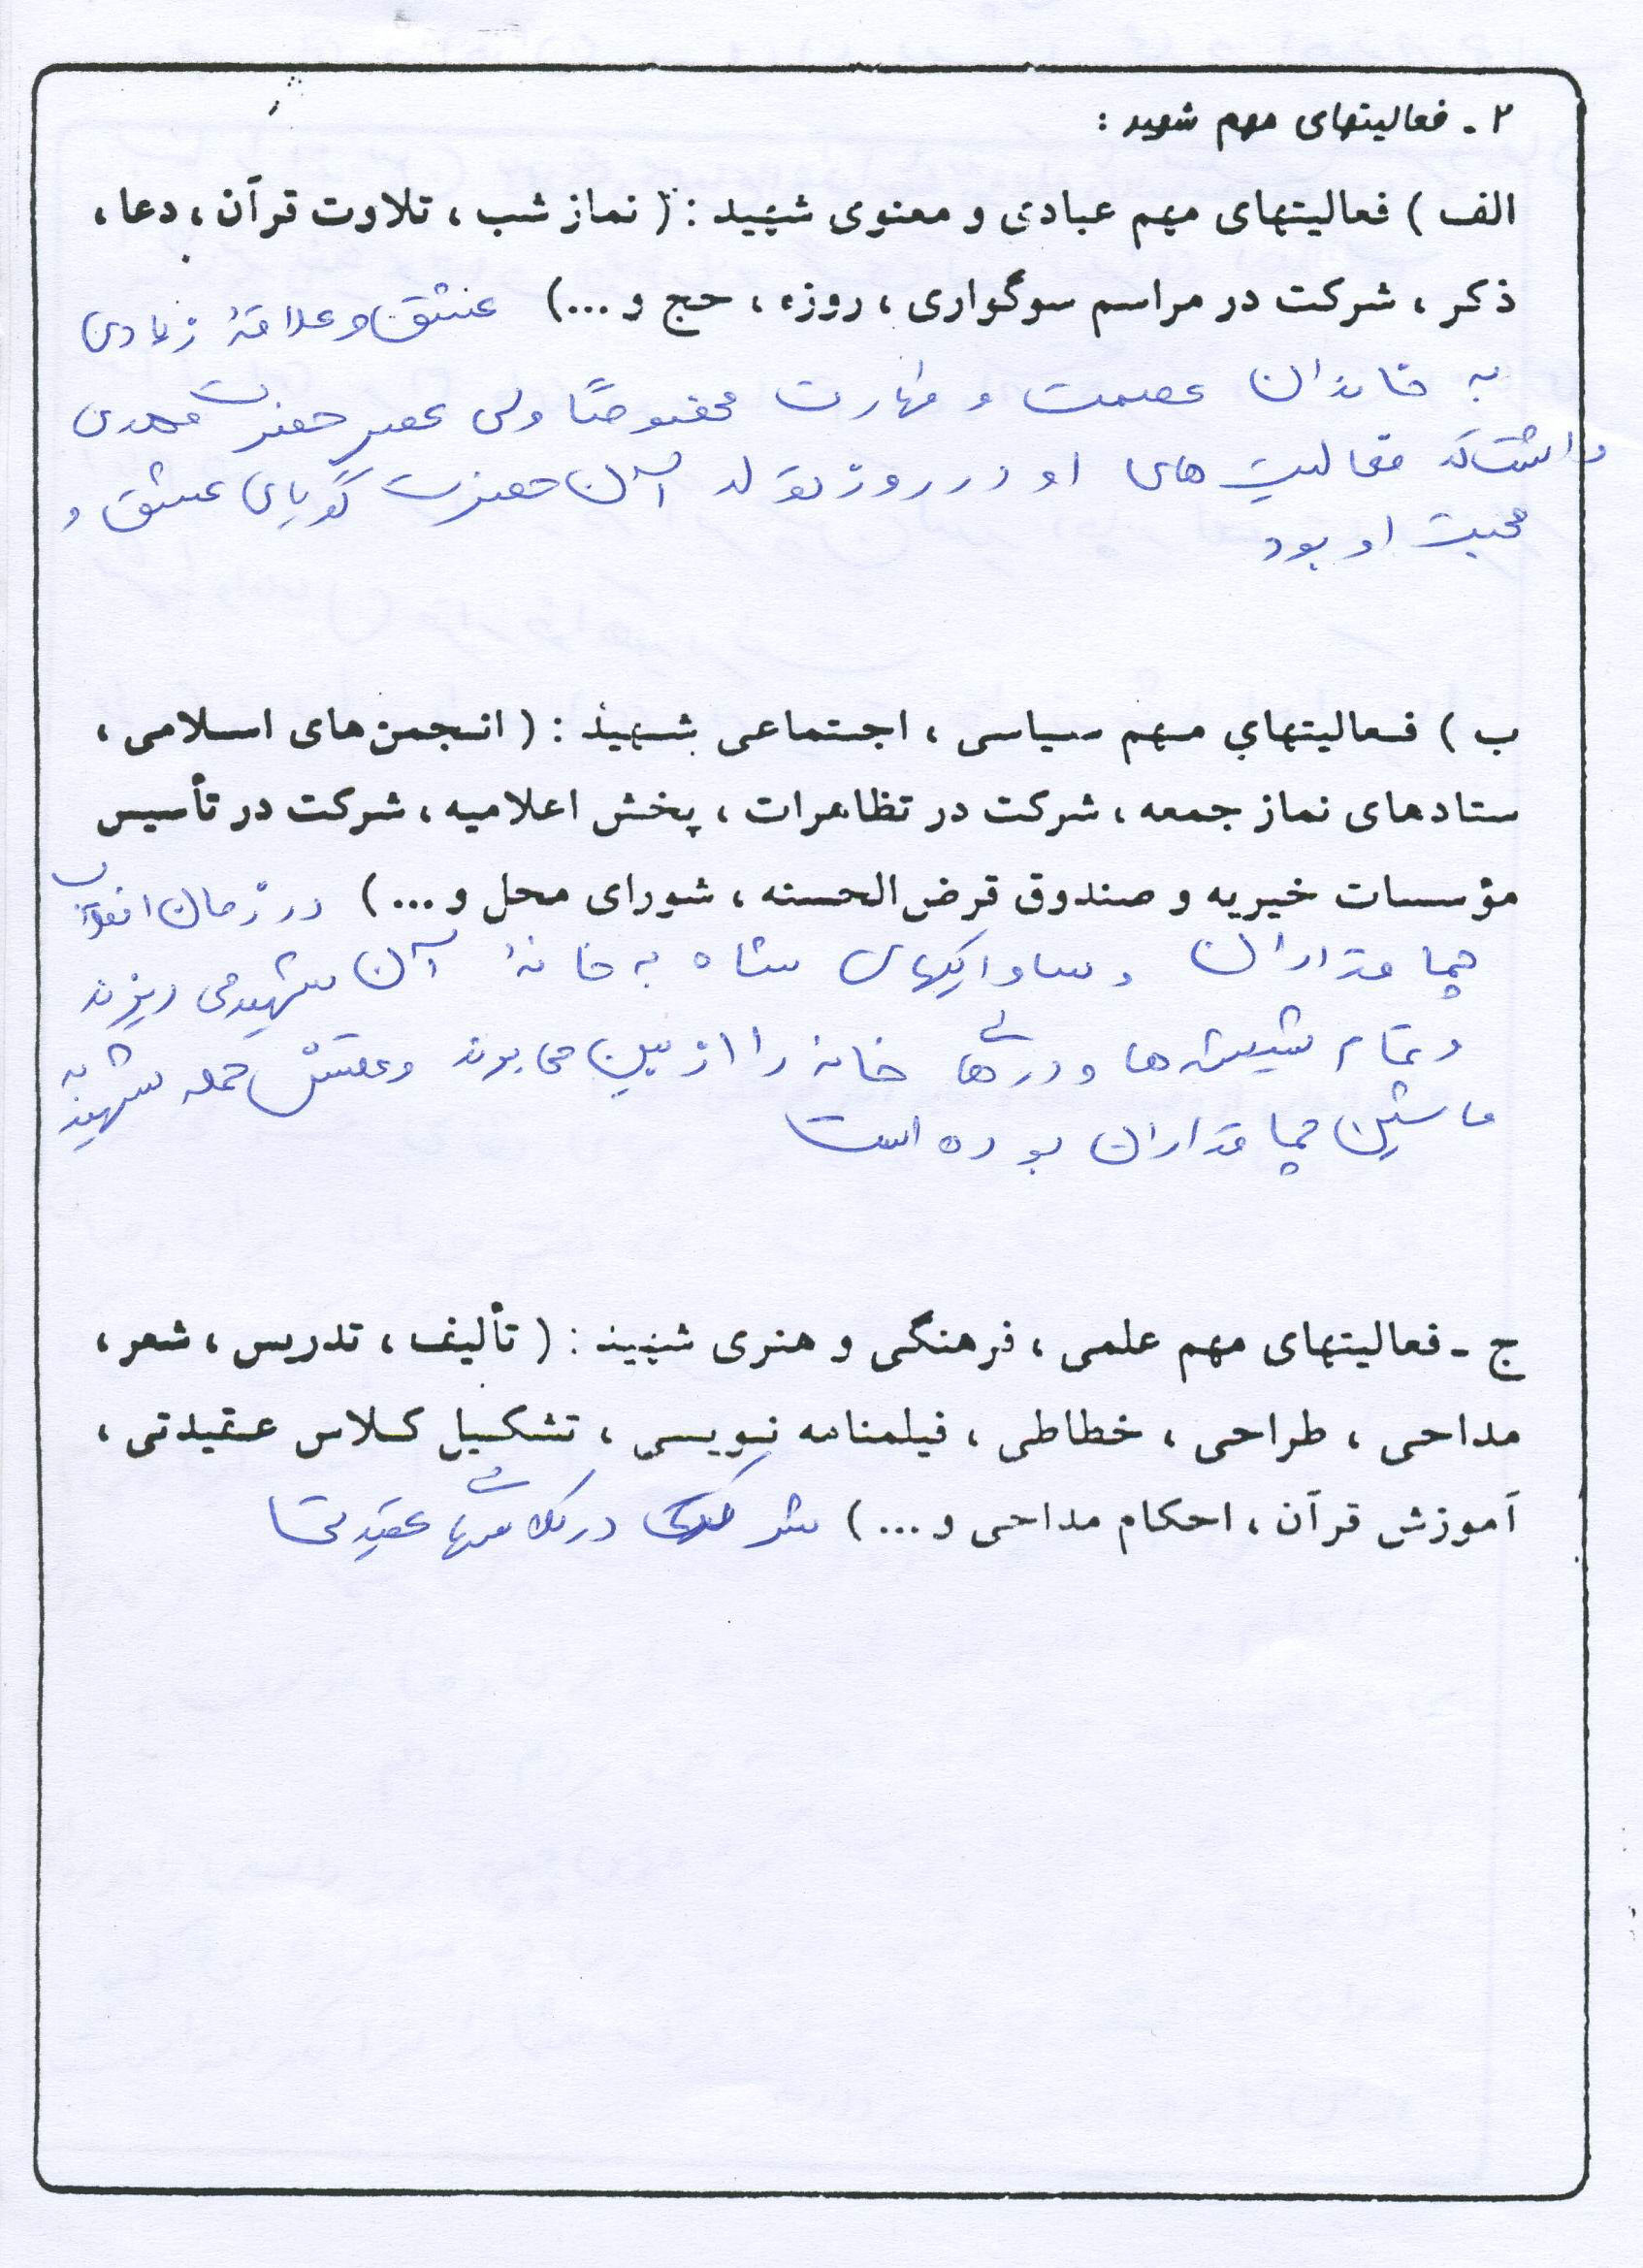 ۲ ـ فعالیتهای مهم شهید :
الف ) فعالیتهای مهم عبادی و معنوی شهید : ( نماز شب ، تلاوت قرآن ، دعا ،
ذکر ، شرکت در مراسم سوگواری ، روزه ، حج و ...) عشق و علاقهٔ زیادی
به خاندان عصمت و طهارت مخصوصاً ولی عصر حضرت مهدی
داشت که فعالیت های او در روز تولد آن حضرت گویای عشق و
محبت او بود
ب ) فعالیتهای مهم سیاسی ، اجتماعی شهید : ( انجمن‌های اسلامی ،
ستادهای نماز جمعه ، شرکت در تظاهرات ، پخش اعلامیه ، شرکت در تأسیس
مؤسسات خیریه و صندوق قرض‌الحسنه ، شورای محل و ...) در زمان انقلاب
چماقداران و ساواکیهای شاه به خانهٔ آن شهید می ریزند
و تمام شیشه ها و درهای خانه را از بین می برند و عقشش حمله شهید به
ماشین چماقداران بوده است
ج ـ فعالیتهای مهم علمی ، فرهنگی و هنری شهید : ( تألیف ، تدریس ، شعر ،
مداحی ، طراحی ، خطاطی ، فیلمنامه نویسی ، تشکیل کلاس عقیدتی ،
آموزش قرآن ، احکام مداحی و ...) شرکت در کلاسهای عقیدتی